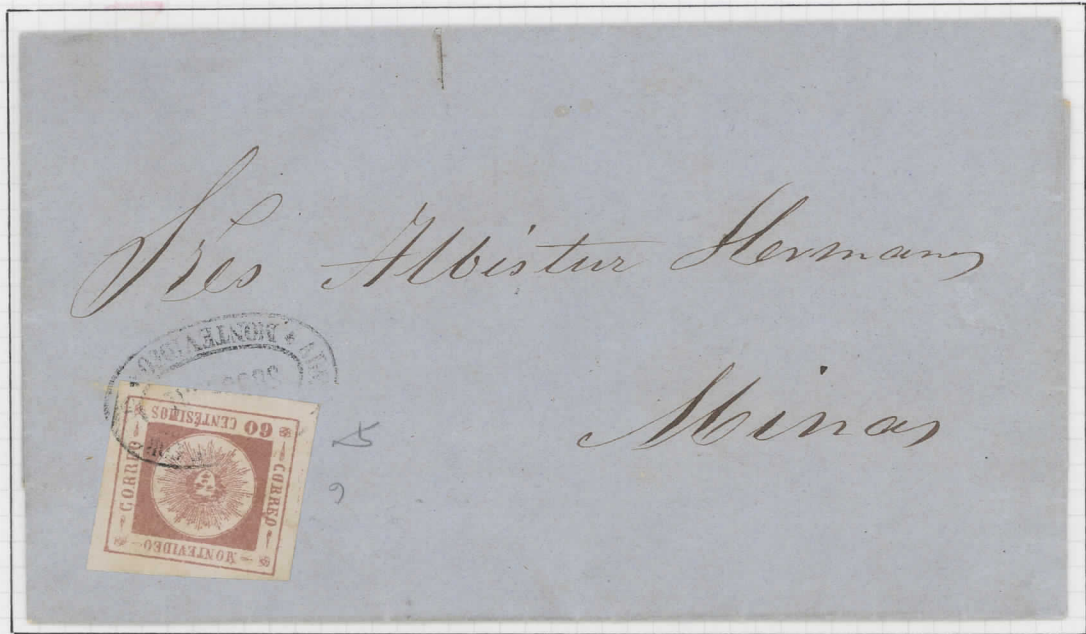 Sres Albistur Hermanos
Minas
MONTEVIDEO
60 CENTÉSIMOS
CORREO
CORREO
MONTEVIDEO